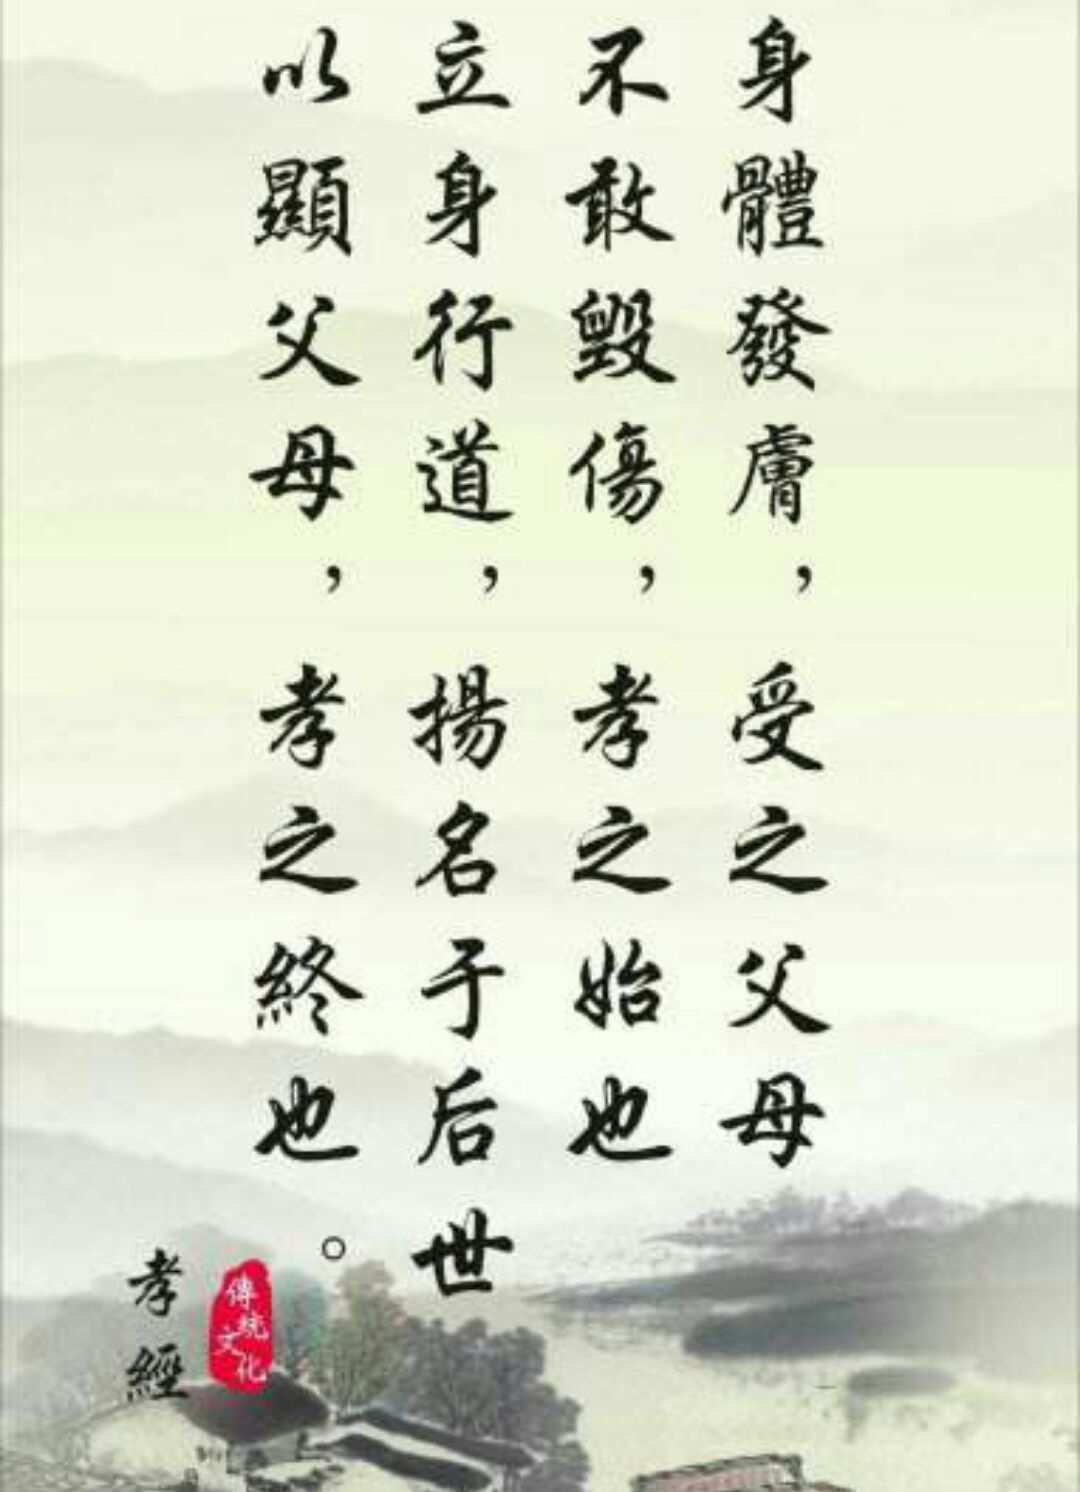 身體發膚，受之父母
不敢毀傷，孝之始也
立身行道，揚名于后世
以顯父母，孝之終也。
孝經
傳統
文化